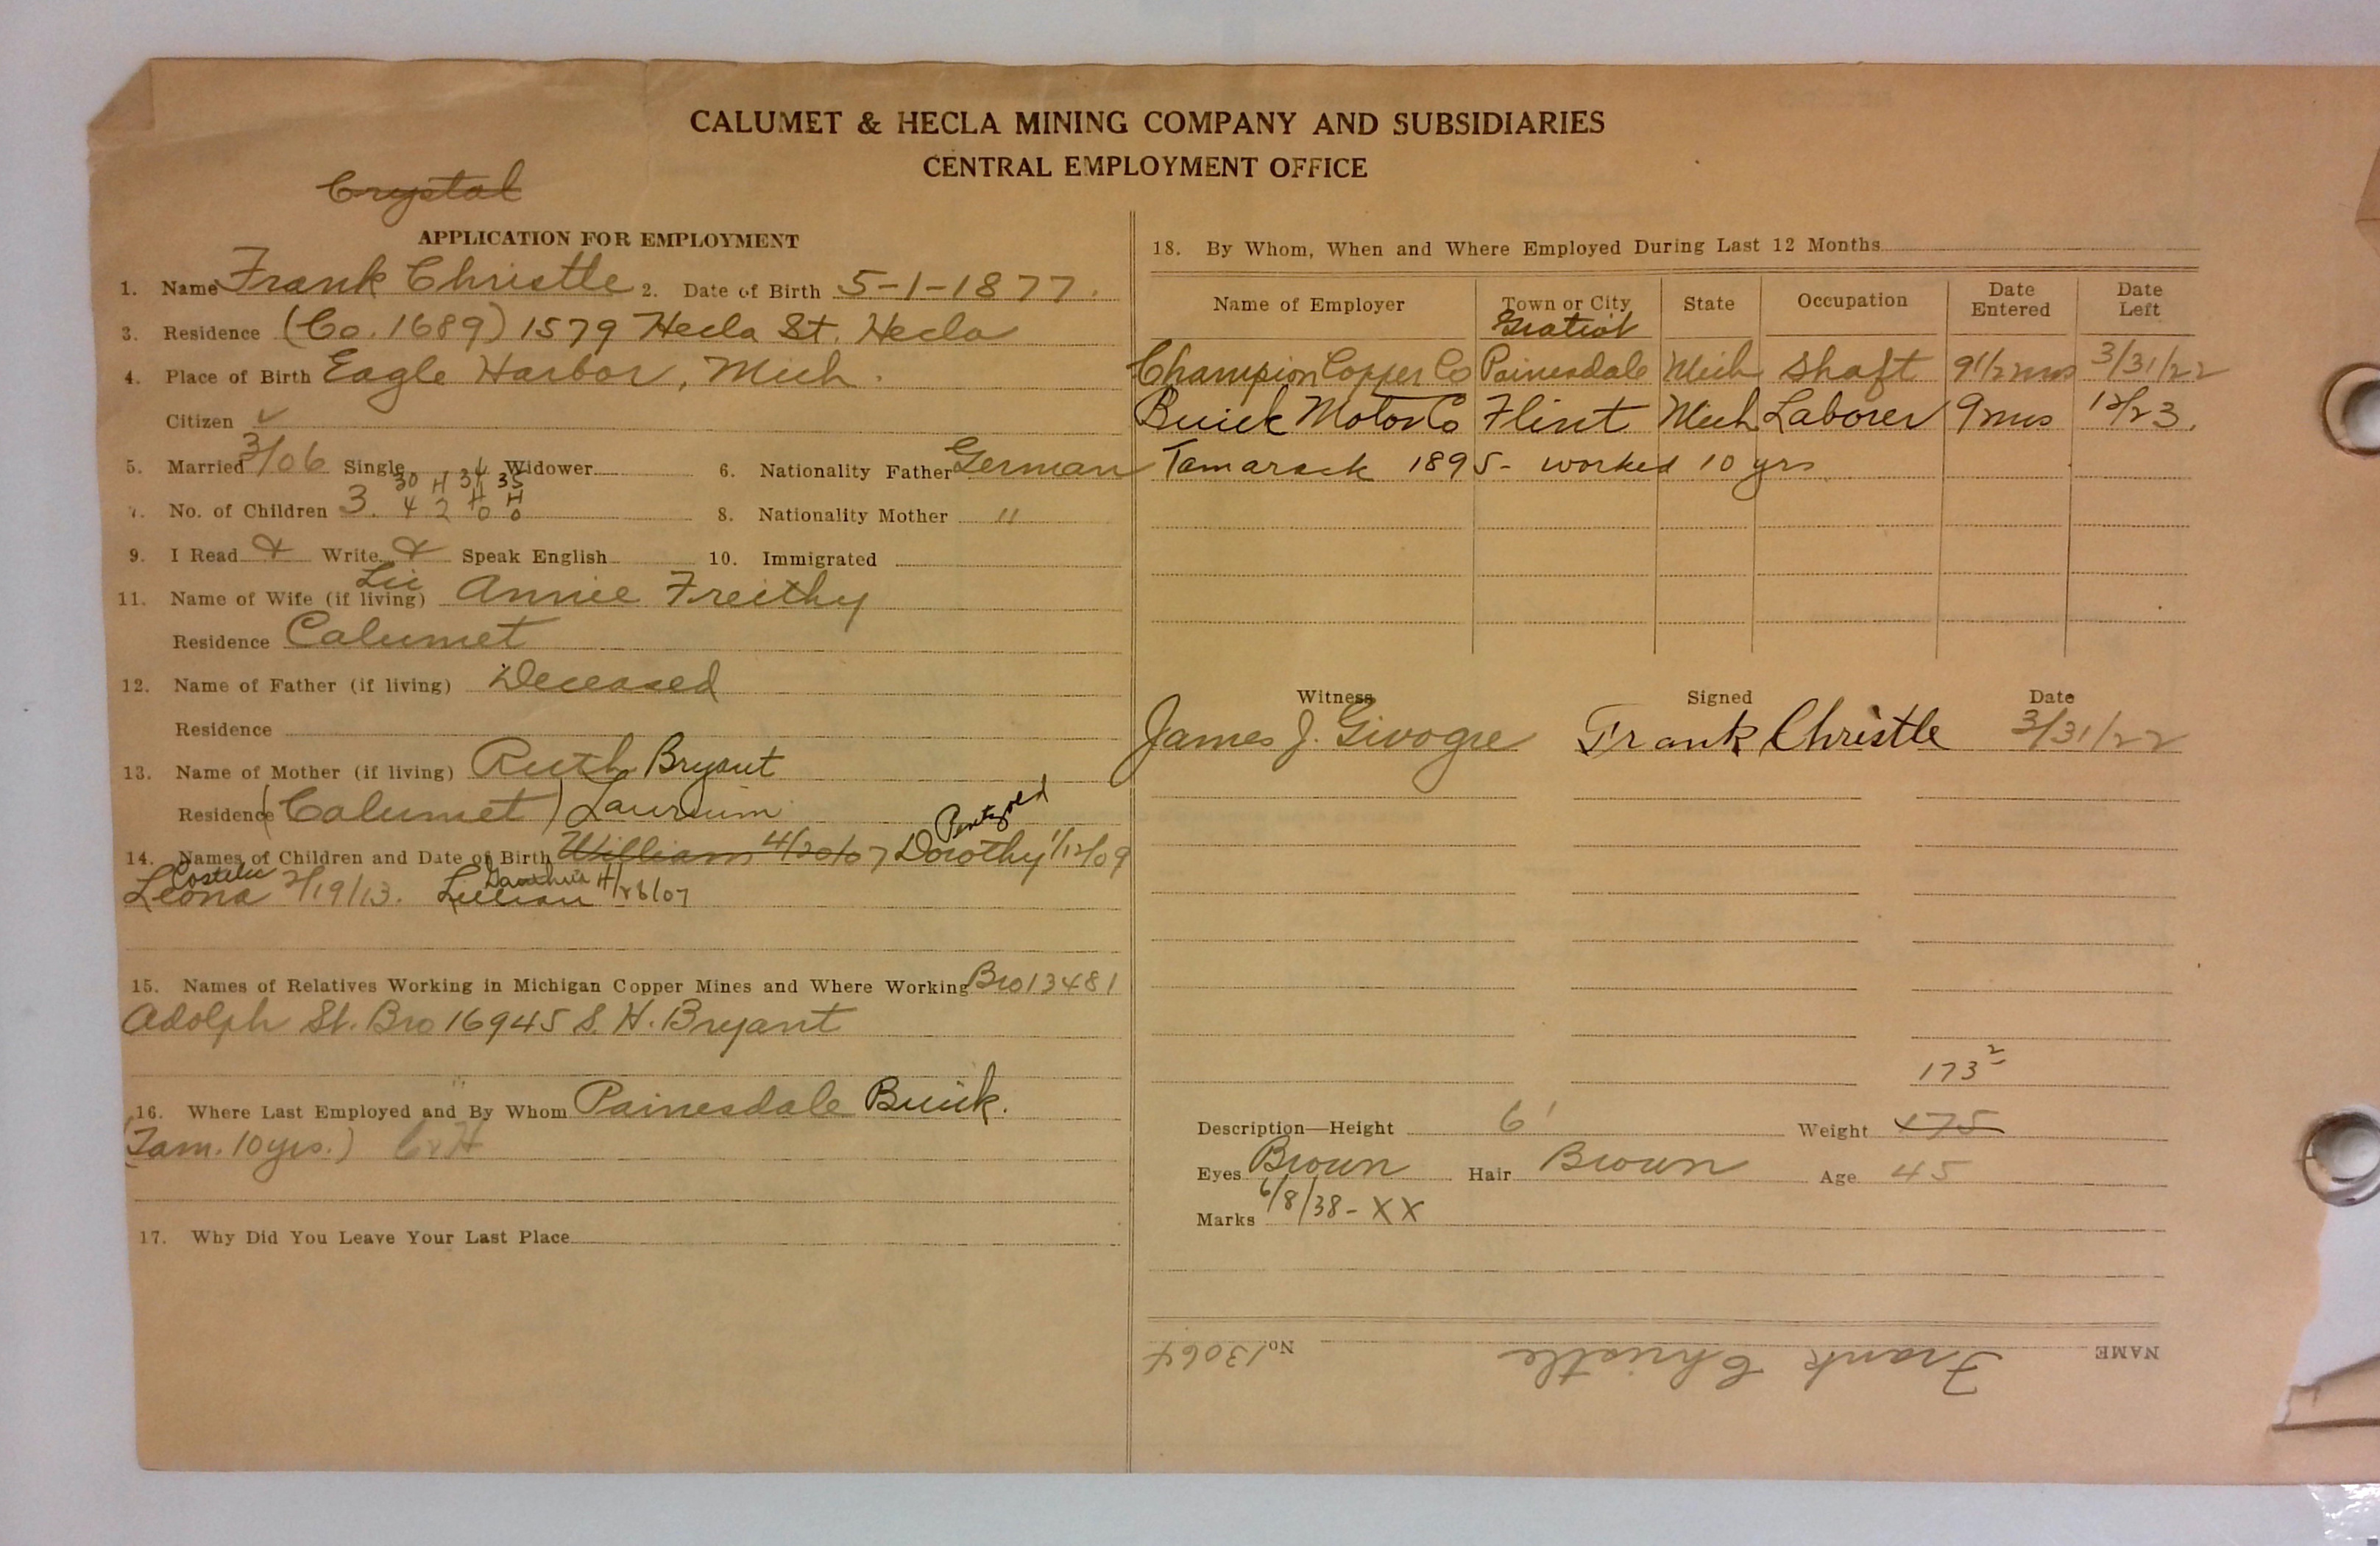 CALUMET & HECLA MINING COMPANY AND SUBSIDIARIES
CENTRAL EMPLOYMENT OFFICE
Crystal
APPLICATION FOR EMPLOYMENT
1. Name Frank Christle 2. Date of Birth 5-1-1877.
3. Residence (Co. 1689) 1579 Hecla St. Hecla
4. Place of Birth Eagle Harbor, Mich.
Citizen ✓
5. Married 3/06 Single Widower 6. Nationality Father German
30 H 34 35
7. No. of Children 3. 4 2 0 0 8. Nationality Mother "
9. I Read & Write & Speak English 10. Immigrated
11. Name of Wife (if living) Annie Freithy
Residence Calumet
12. Name of Father (if living) Deceased
Residence
13. Name of Mother (if living) Ruth Bryant
Residence (Calumet) Laurium
14. Names of Children and Date of Birth William 4/20/07 Dorothy 1/12/09
Leona 2/19/13. Lillian 4/26/07
15. Names of Relatives Working in Michigan Copper Mines and Where Working Bro 13481
Adolph St. Bro 16945 S. H. Bryant
16. Where Last Employed and By Whom Painesdale Buick.
(Tam. 10 yrs.) C & H
17. Why Did You Leave Your Last Place
18. By Whom, When and Where Employed During Last 12 Months
Name of Employer Town or City State Occupation Date Entered Date Left
Gratiot
Champion Copper Co Painesdale Mich Shaft 9 1/2 mos 3/31/22
Buick Motor Co Flint Mich Laborer 9 mos 12/23.
Tamarack 1895- worked 10 yrs
Witness Signed Date
James J. Givogre Frank Christle 3/31/22
173 2
Description—Height 6' Weight 175
Eyes Brown Hair Brown Age 45
Marks 6/8/38 - XX
NAME Frank Christle No. 13064